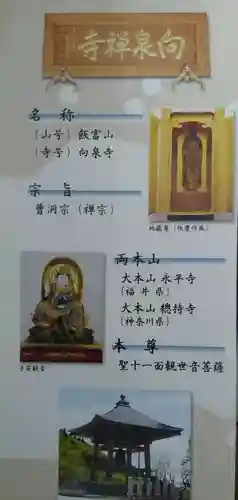 寺禅泉向
名称
（山号）飯富山
（寺号）向泉寺
宗旨
曹洞宗（禅宗）
地蔵尊（快慶作風）
両本山
大本山 永平寺
（福井県）
大本山 總持寺
（神奈川県）
子安観音
本尊
聖十一面観世音菩薩